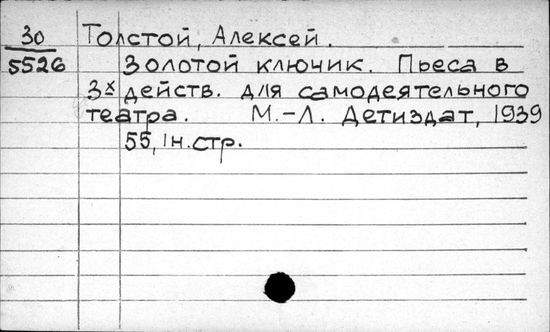 30 Толстой, Алексей.
5526 Золотой ключик. Пьеса в
3х действ. для самодеятельного
театра. М.-Л. Детиздат, 1939
55, 1н. стр.